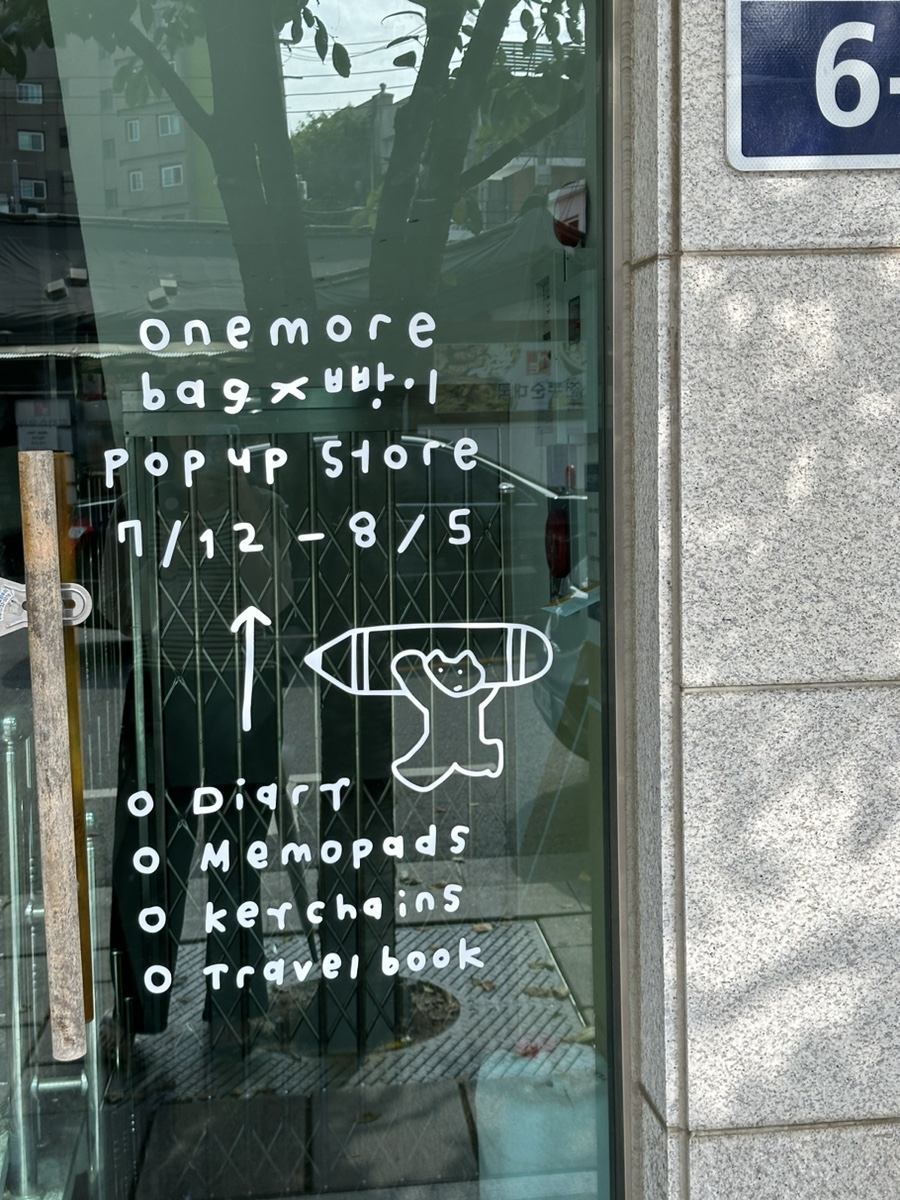 onemore
bag x 빵이
Popup Store
7/12 - 8/5
o Diary
o Memopads
o keychains
o Travel book
6-